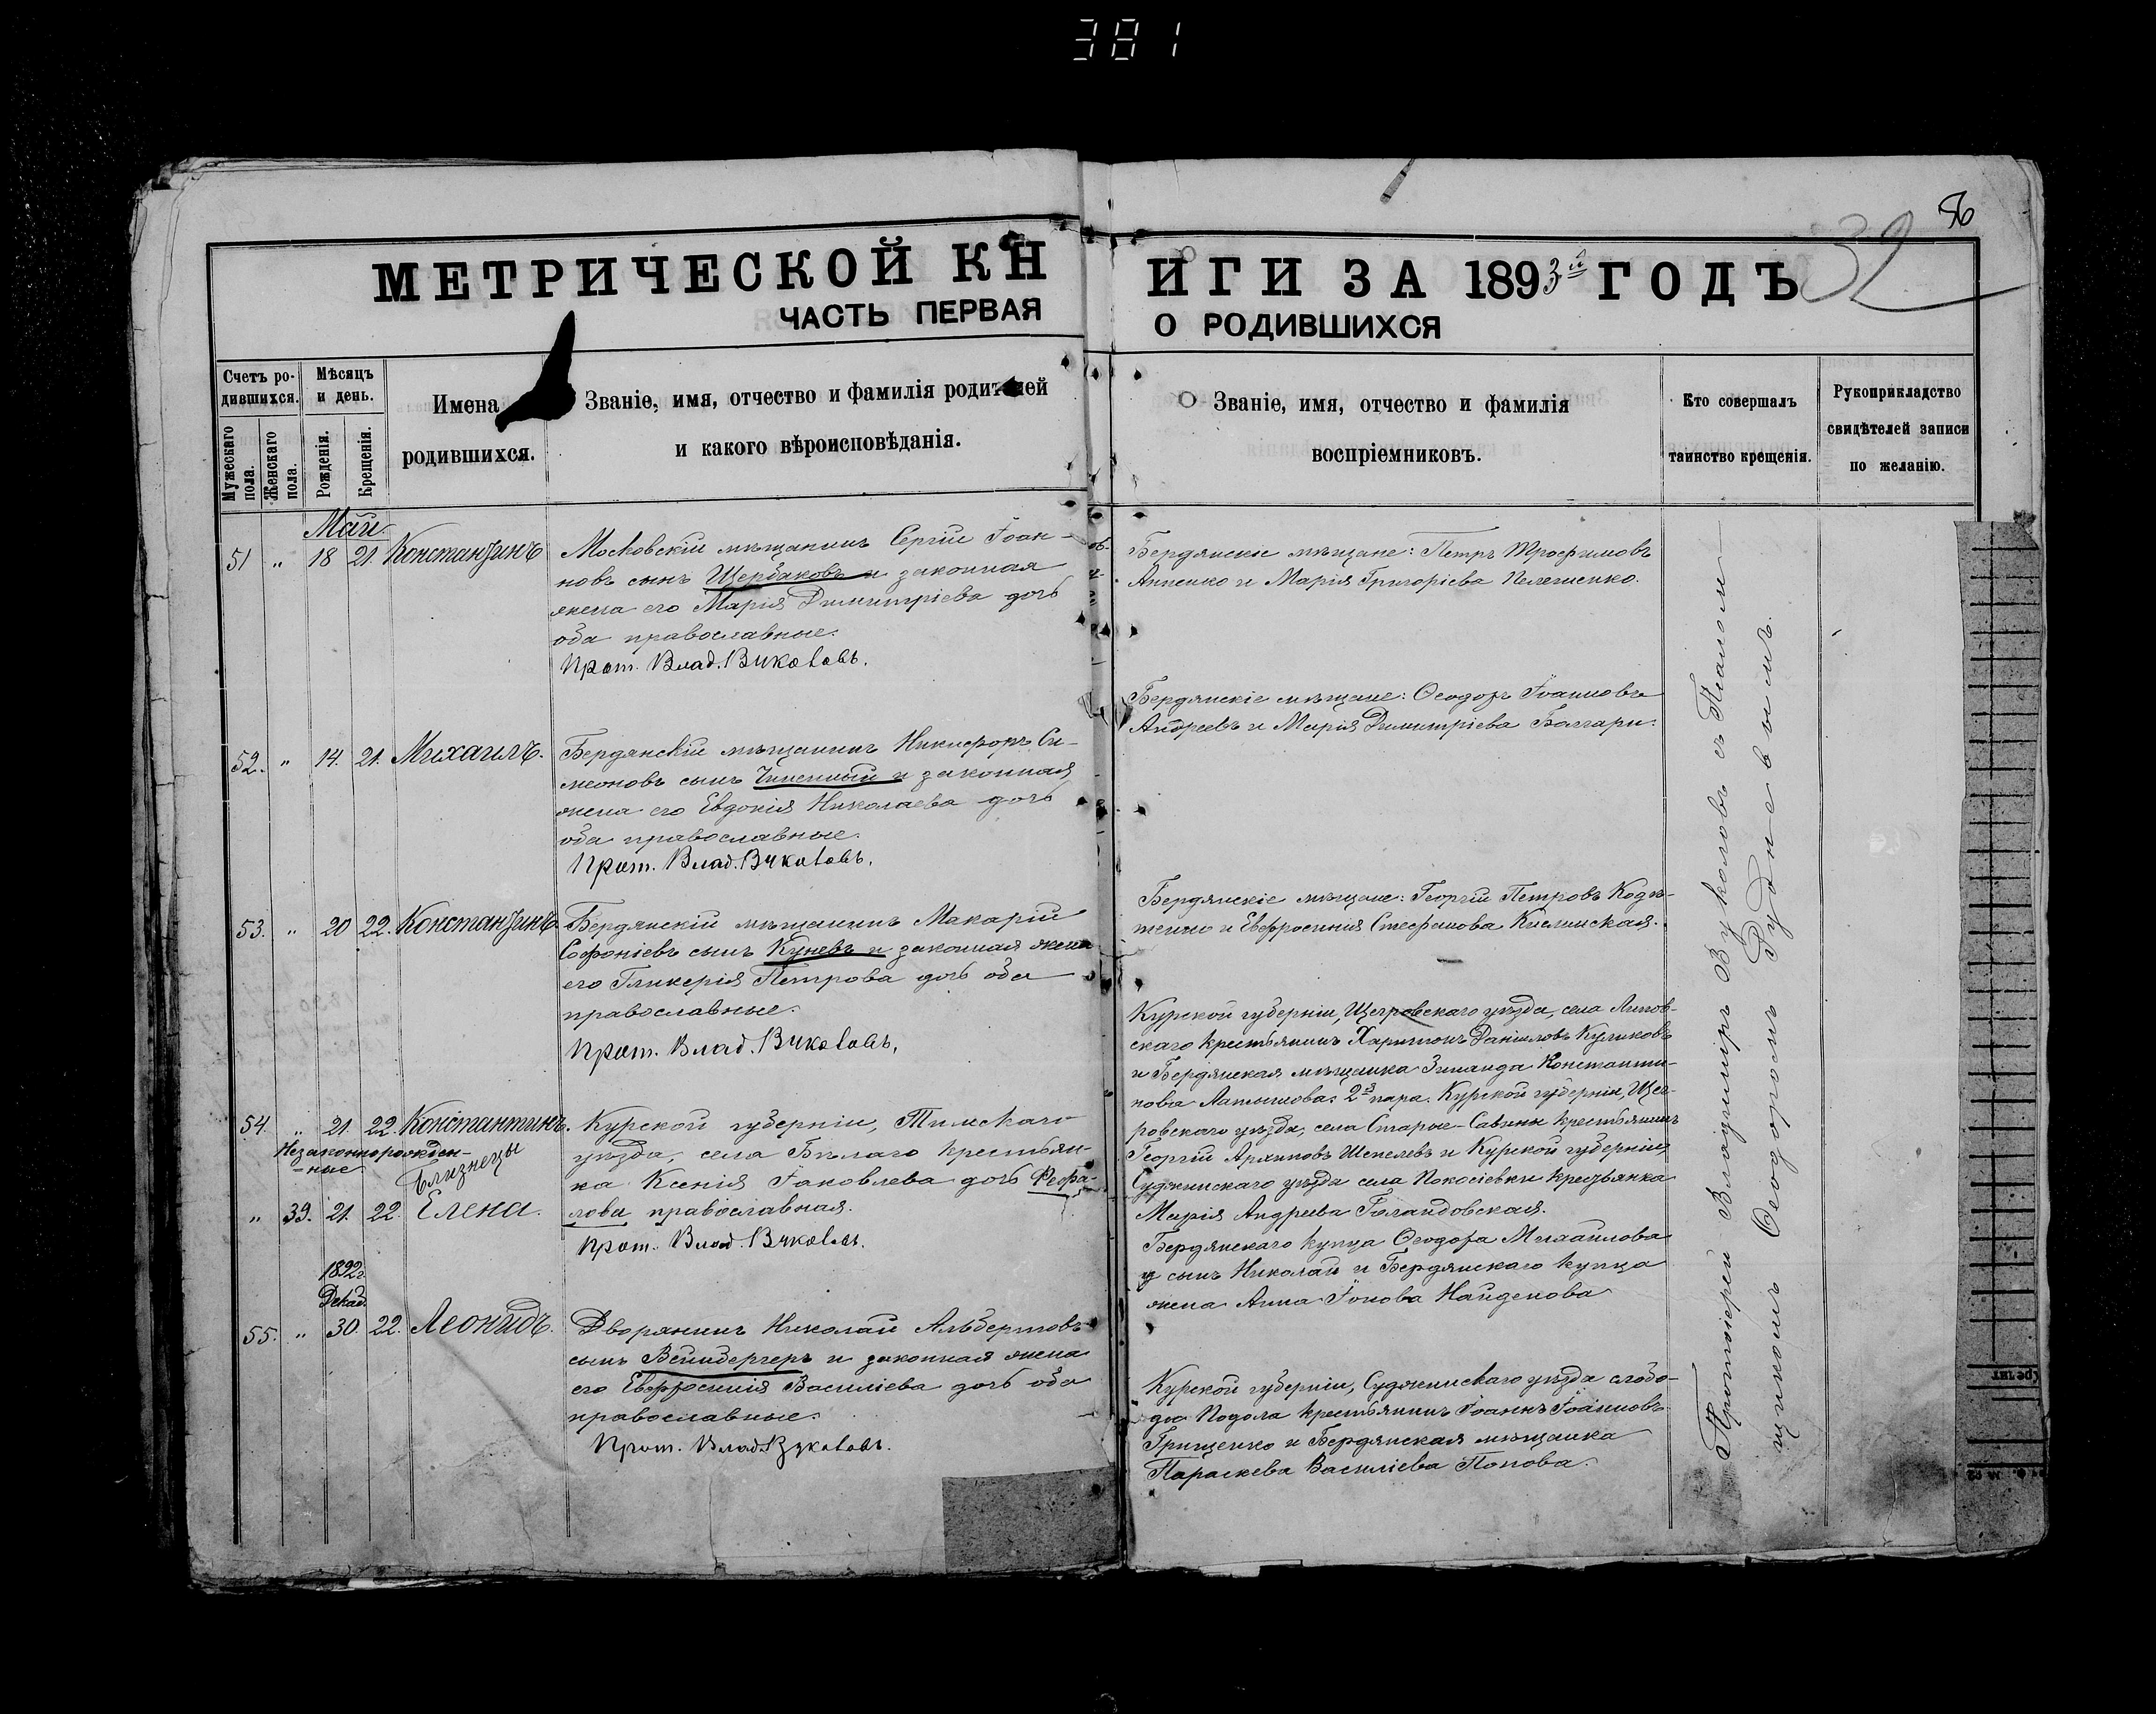 381
86
32
МЕТРИЧЕСКОЙ КН
ЧАСТЬ ПЕРВАЯ
ИГИ ЗА 1893й ГОДЪ
О РОДИВШИХСЯ
Счетъ ро-
дившихся.
Мужескаго
пола.
Женскаго
пола.
Мѣсяцъ
и день.
Рожденія.
Крещенія.
Имена
родившихся.
Званіе, имя, отчество и фамилія родителей
и какого вѣроисповѣданія.
Званіе, имя, отчество и фамилія
воспріемниковъ.
Кто совершалъ
таинство крещенія.
Рукоприкладство
свидѣтелей записи
по желанію.
Май.
51 " 18 21. Константинъ
Московскій мѣщанинъ Сергій Іоан-
новъ сынъ Щербаковъ и законная
жена его Марія Димитріева дочь
оба православные.
Прот. Влад. Вуколовъ.
Бердянскіе мѣщане: Петръ Трофимовъ
и Марія Григоріева
52. " 14. 21. Михаилъ.
Бердянскій мѣщанинъ Никифоръ Си-
меоновъ сынъ и законная
жена его Евдокія Николаева дочь
оба православные.
Прот. Влад. Вуколовъ.
Бердянскіе мѣщане: Ѳеодоръ Іоанновъ
Андреевъ и Марія Димитріева Болгари.
53. " 20 22. Константинъ
Бердянскій мѣщанинъ Макарій
Софоніевъ сынъ Куневъ и законная жена
его Гликерія Петрова дочь оба
православные.
Прот. Влад. Вуколовъ.
Бердянскіе мѣщане: Георгій Петровъ
и Евфросинія Стефанова
54. " 21. 22. Константинъ.
Незаконнорожден-
ные
Близнецы
" 39. 21. 22. Елена.
Курской губерніи, Тимскаго
уѣзда, села Бѣлаго крестьян-
ка Ксенія Іаковлева дочь Феофи-
лова православная.
Прот. Влад. Вуколовъ.
Курской губерніи, Щигровскаго уѣзда, села Липов-
скаго крестьянинъ Харитонъ Даніиловъ Куликовъ
и Бердянская мѣщанка Зинаида Константи-
нова Латышова. 2я пара. Курской губерніи, Щиг-
ровскаго уѣзда, села Старые-Савины крестьянинъ
Георгій Архиповъ Шепелевъ и Курской губерніи,
Суджинскаго уѣзда села крестьянка
Марія Андреева Голандовская.
1892г.
Декаб.
55. " 30. 22. Леонидъ.
Дворянинъ Николай Альбертовъ
сынъ Вейнбергеръ и законная жена
его Евфросинія Василіева дочь оба
православные.
Прот. Влад. Вуколовъ.
Бердянскаго купца Ѳеодора Михайлова
сынъ Николай и Бердянскаго купца
жена Анна Іонова Найденова
Курской губерніи, Суджинскаго уѣзда слобо-
ды Подола крестьянинъ Іоаннъ Іоанновъ
Грищенко и Бердянская мѣщанка
Параскева Василіева Попова.
Протоіерей Владиміръ Вуколовъ съ Псалом-
щикомъ Ѳеодоромъ Рудневымъ.